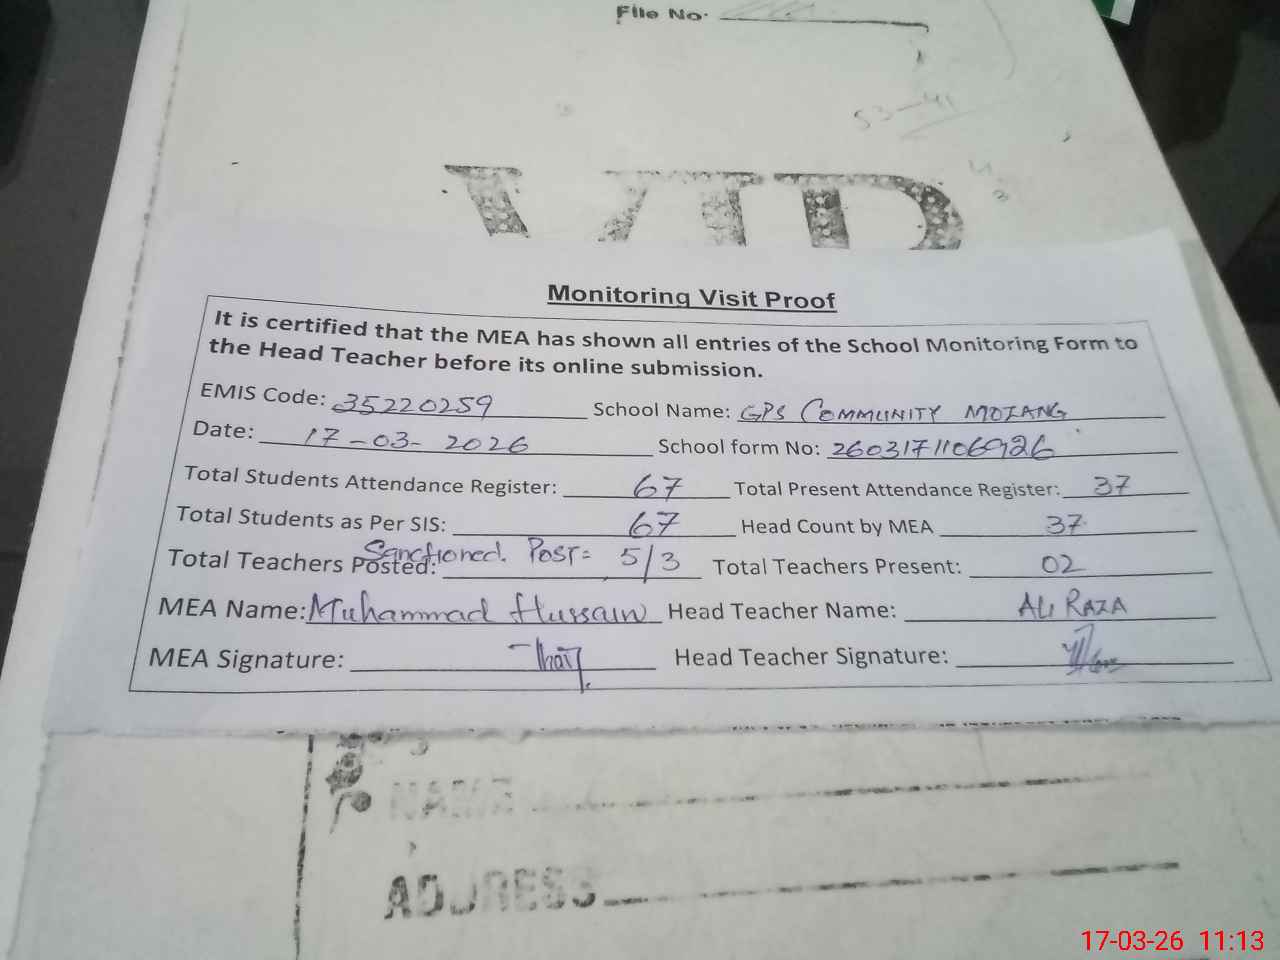 File No.
53-41
VIP
Monitoring Visit Proof
It is certified that the MEA has shown all entries of the School Monitoring Form to
the Head Teacher before its online submission.
EMIS Code: 35220259 School Name: GPS COMMUNITY MOZANG
Date: 17-03-2026 School form No: 26031711069926
Total Students Attendance Register: 67 Total Present Attendance Register: 37
Total Students as Per SIS: 67 Head Count by MEA 37
Sanctioned. Post=
Total Teachers Posted: 5/3 Total Teachers Present: 02
MEA Name: Muhammad Hussain Head Teacher Name: ALI RAZA
MEA Signature: Head Teacher Signature:
NAME
ADDRESS
17-03-26 11:13